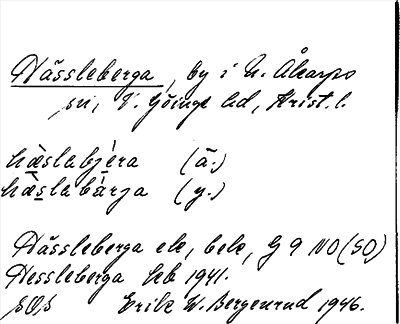 Nässleberga, by i N. Åkarps
sn, V. Göinge hd, Krist. l.
næ̀slebjɛra (ä.)
næ̀slebarja (y.)
Nässleberga ek, bebe, G 9 NO (SO)
Nessleberga Jrb 1941.
SOS Erik W. Bergenrud 1946.